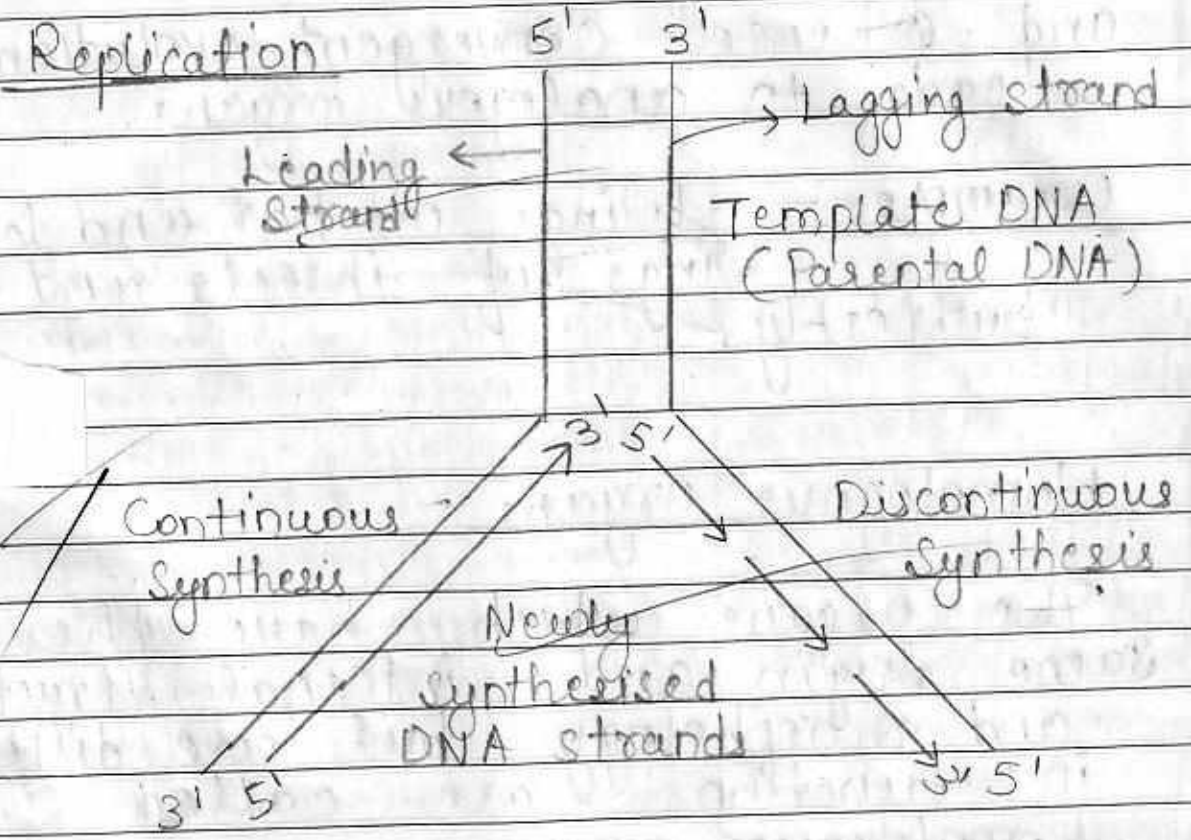 Replication
5' 3'
Lagging strand
Leading
Strand
Template DNA
(Parental DNA)
3' 5'
Continuous
Synthesis
Discontinuous
Synthesis.
Newly
synthesised
DNA strands
3' 5'
3' 5'